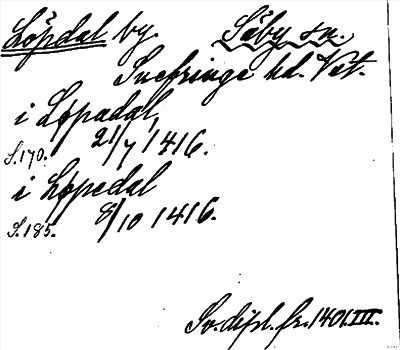 Löpdal by. Säby sn.
Snefringe hd. Vst.
i Løpadal,
S.170. 21/7 1416.
i Løpedal
S.185. 8/10 1416.
Sv. dipl. fr. 1401. III.